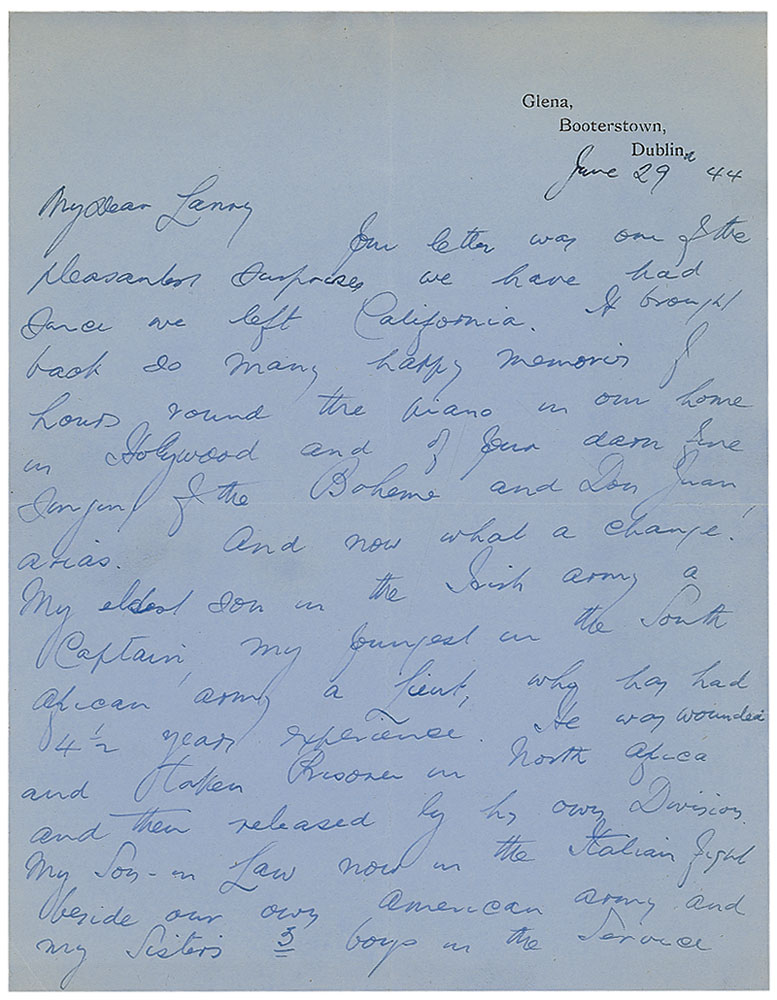 Glena,
Booterstown,
Dublin.
June 29 44
My dear Lanny
Your letter was one of the
pleasantest surprises we have had
since we left California. It brought
back so many happy memories of
hours round the piano in our home
in Hollywood and of your darn fine
singing of the Boheme and Don Juan
arias. And now what a change!
My eldest son in the Irish army a
Captain, my youngest in the South
African army a Lieut, why has had
4 1/2 years experience. He was wounded
and taken Prisoner in North Africa
and then released by his own Division.
My Son-in Law now in the Italian fight
beside our own American army and
my Sisters 3 boys in the Service